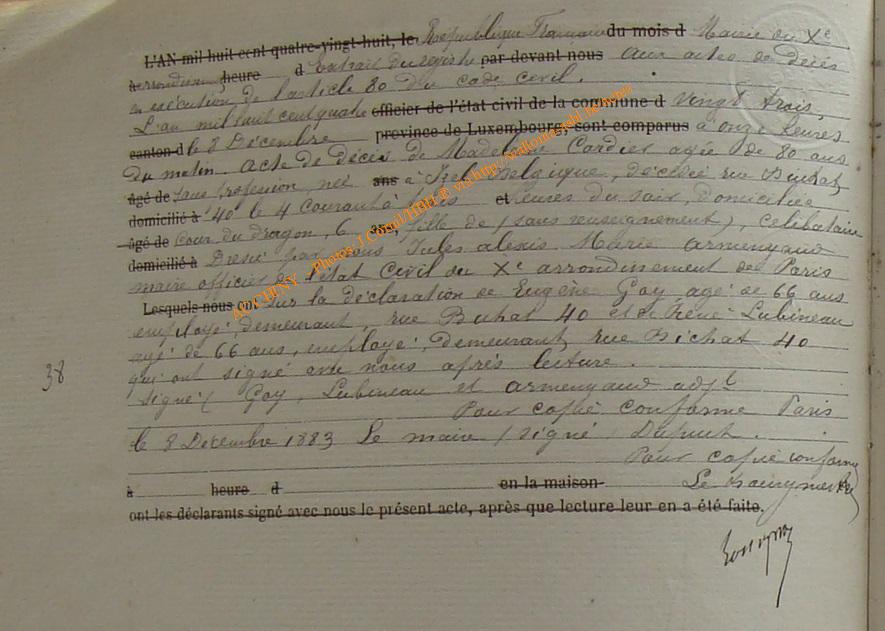 L'AN mil huit cent quatre-vingt-huit, le République Française du mois d Mairie du Xe
arrondissement heure d Extrait du registre par devant nous aux actes de décès
en exécution de l'article 80 du code civil.
L'an mil huit cent quatre officier de l'état civil de la commune d vingt trois,
canton d le 8 Décembre province de Luxembourg, sont comparus à onze heures
du matin. Acte de décès de Madeleine Cordier agée de 80 ans
âgé de sans profession, née ans à Belgique, décédée rue Bichat
domicilié à 40 le 4 courant à et heures du soir, domiciliée
âgé de cour du Dragon, 6 ans, fille de (sans renseignement), célibataire
domicilié à Dressé par nous Jules Alexis Marie Armengaud
maire officier de l'état civil du Xe arrondissement de Paris
Lesquels nous ont sur la déclaration de Eugène Goy agé de 66 ans
employé, demeurant, rue Buhat 40 et de René Lubineau
agé de 66 ans, employé, demeurant rue Bichat 40
qui ont signé avec nous après lecture.
38
Signé ( Goy, Lubineau et Armengaud adjt
Pour copie conforme Paris
le 8 Décembre 1883 Le maire (signé)
Pour copie conforme
à heure d en la maison Le
ont les déclarants signé avec nous le présent acte, après que lecture leur en a été faite.